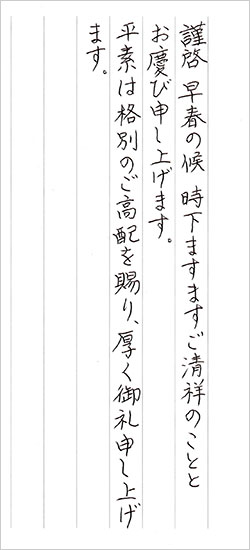 謹啓 早春の候 時下ますますご清祥のことと
お慶び申し上げます。
平素は格別のご高配を賜り、厚く御礼申し上げ
ます。